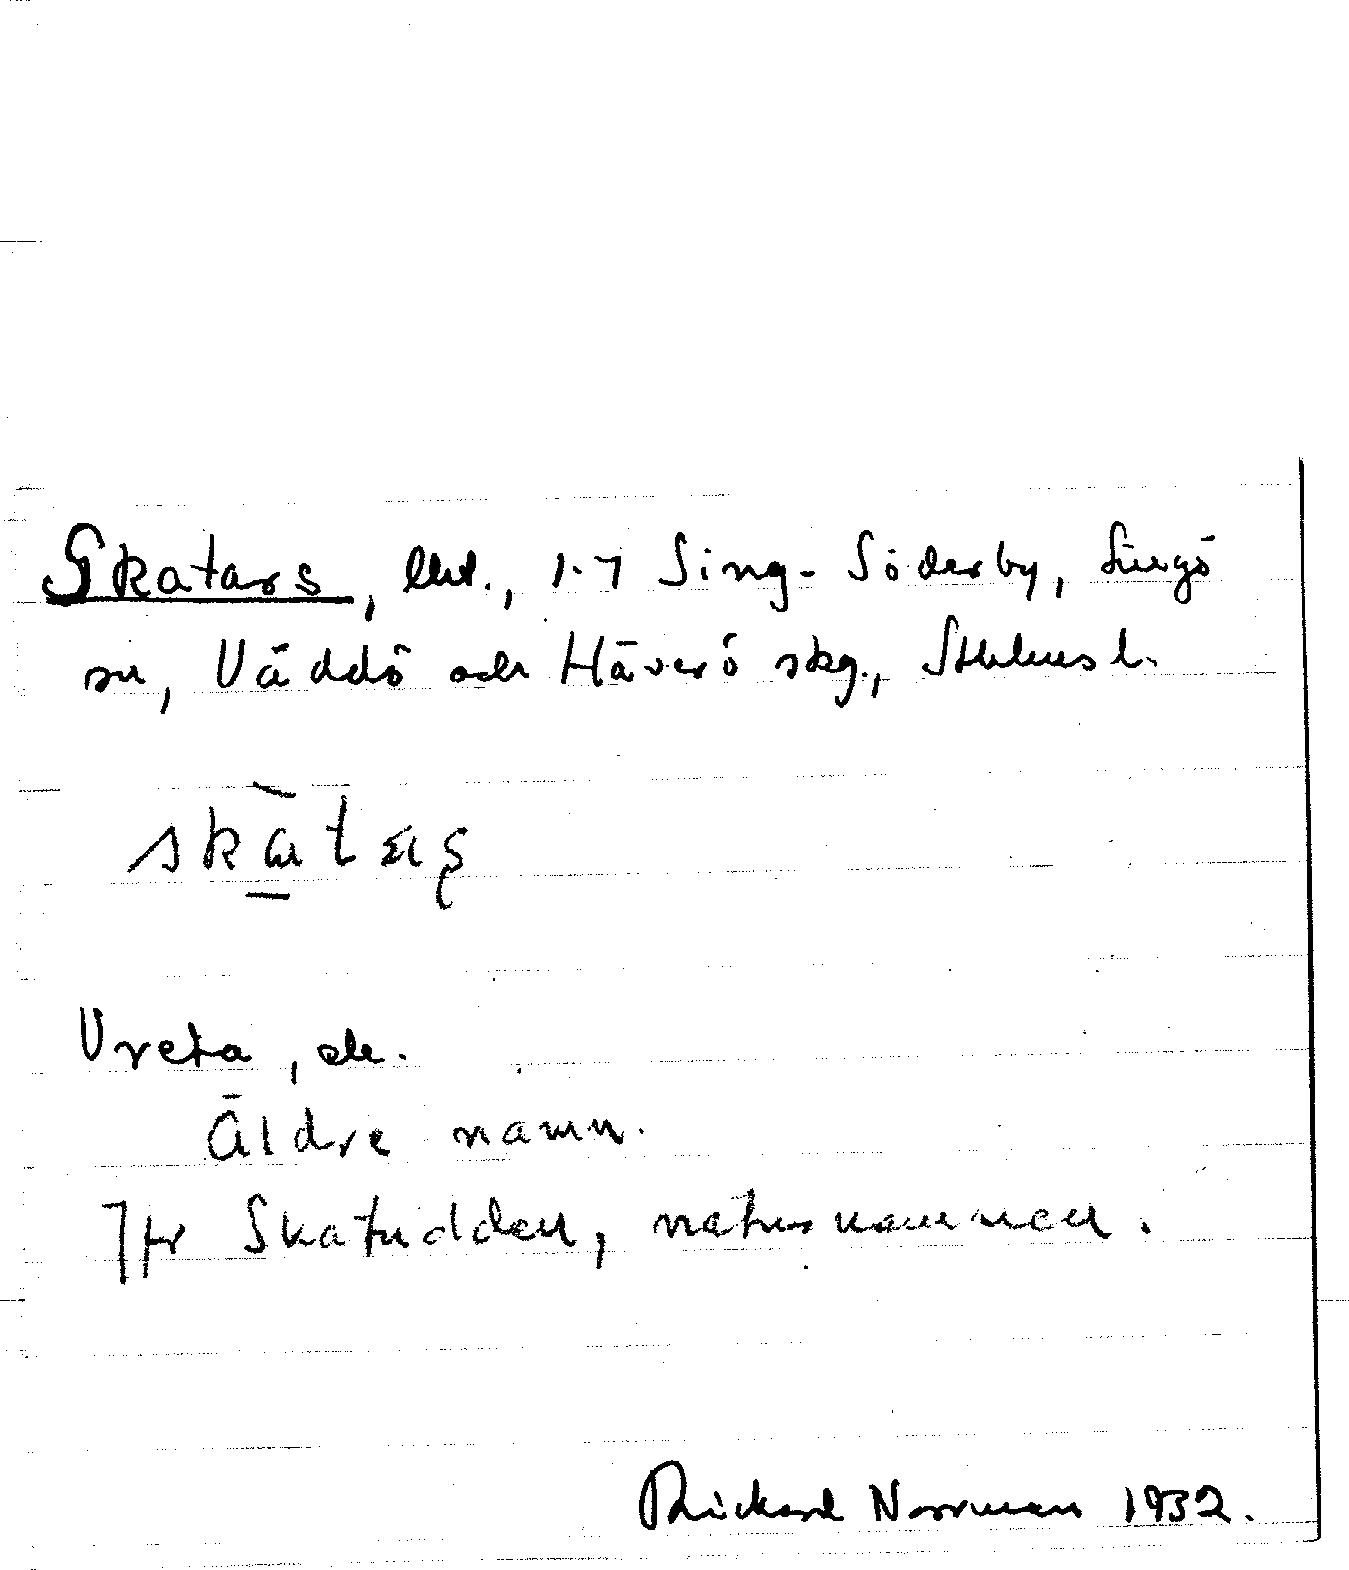 Skatars, lht., 1-7 Sing-Söderby, Singö
sn, Väddö och Häverö skg., Sthlms l.
Vreta, åk.
Äldre namn.
Jfr Skatudden, naturnamnen.
Rickard Norrman 1932.